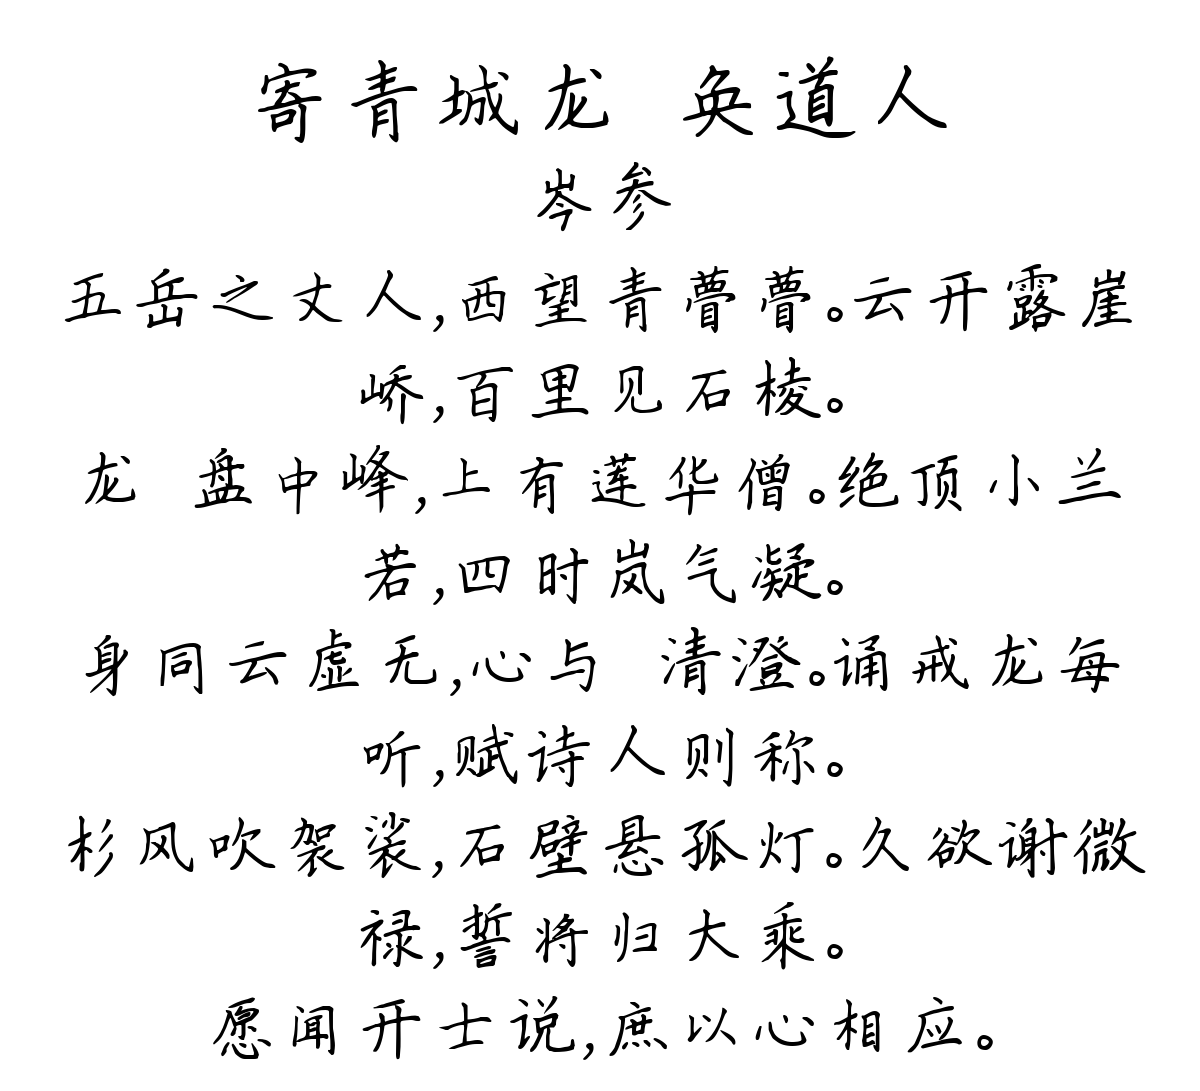 寄青城龙 奂道人
岑参
五岳之丈人,西望青瞢瞢。云开露崖
峤,百里见石棱。
龙 盘中峰,上有莲华僧。绝顶小兰
若,四时岚气凝。
身同云虚无,心与 清澄。诵戒龙每
听,赋诗人则称。
杉风吹袈裟,石壁悬孤灯。久欲谢微
禄,誓将归大乘。
愿闻开士说,庶以心相应。